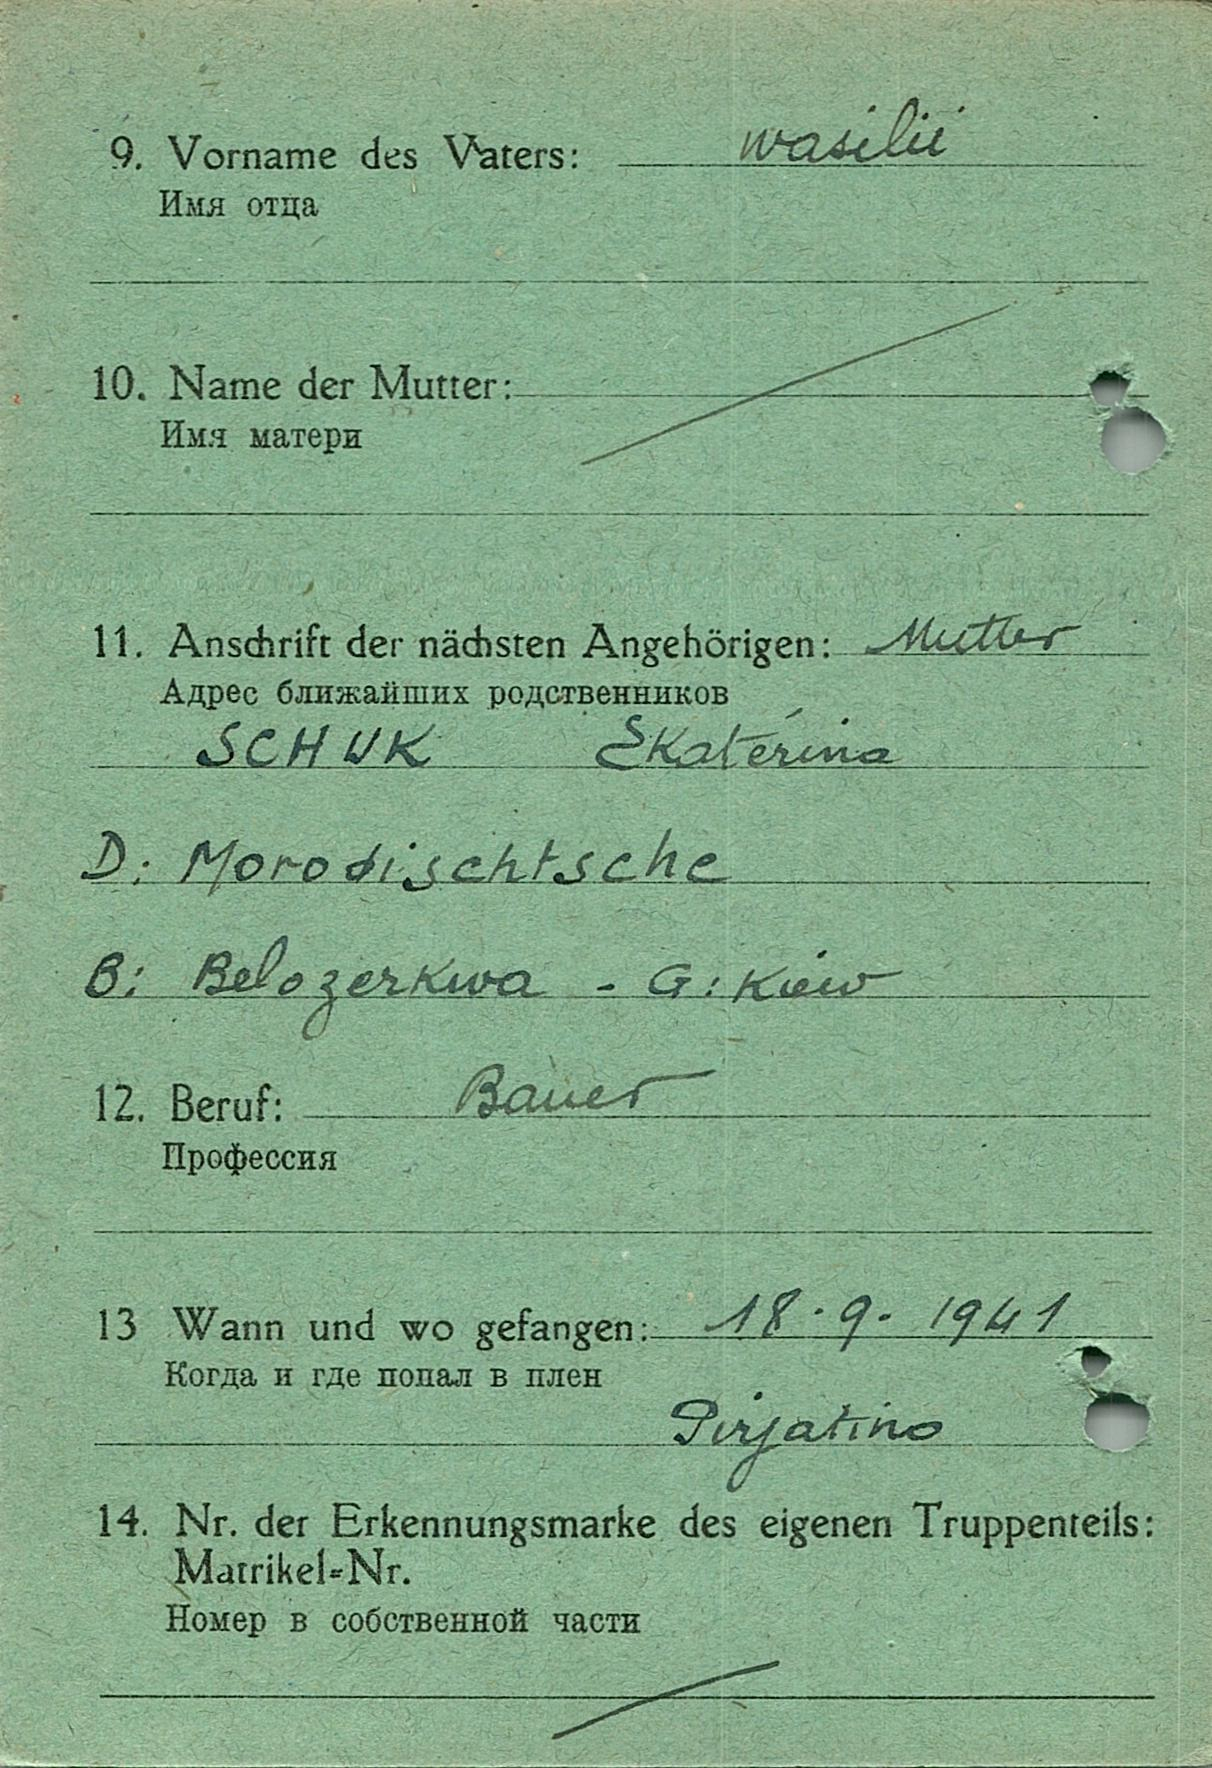 9. Vorname des Vaters: Wasilii
Имя отца
10. Name der Mutter:
Имя матери
11. Anschrift der nächsten Angehörigen: Mutter
Адрес ближайших родственников
SCHUK Ekaterina
D: Morodischtsche
B: Belozerkwa - G: Kiew
12. Beruf: Bauer
Профессия
13 Wann und wo gefangen: 18.9.1941
Когда и где попал в плен
Pirjatino
14. Nr. der Erkennungsmarke des eigenen Truppenteils:
Matrikel-Nr.
Номер в собственной части